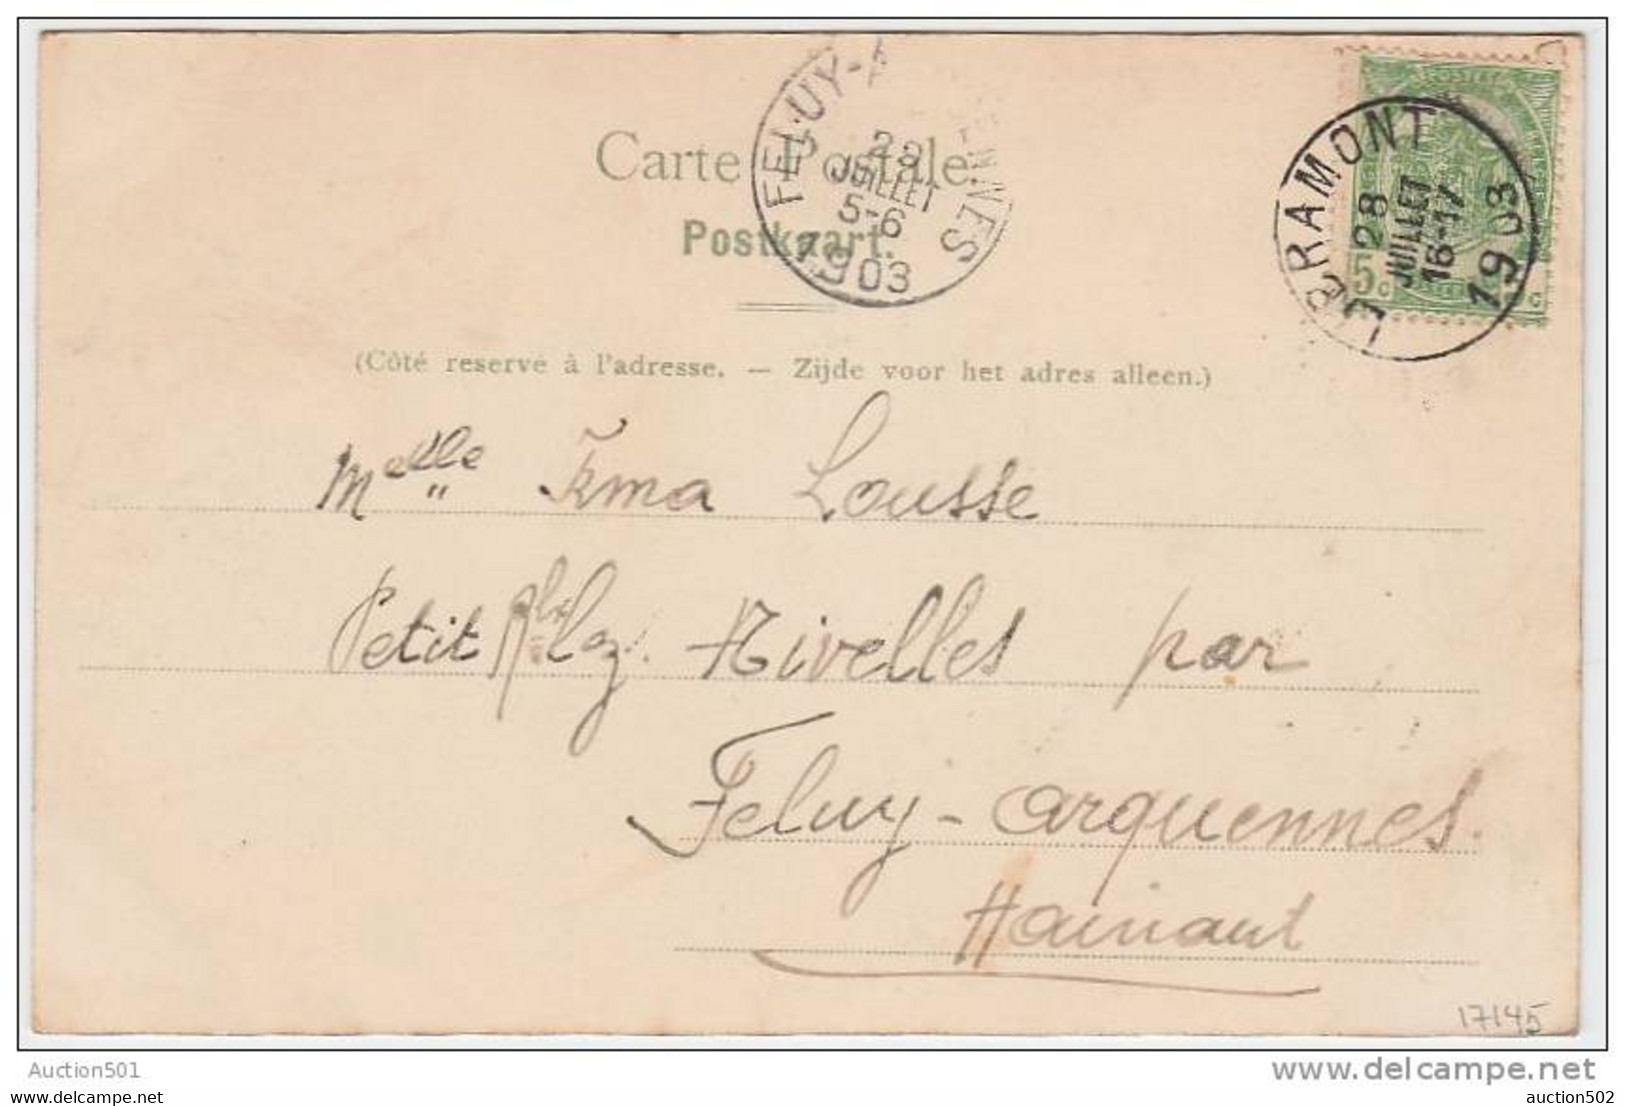 Carte Postale
Postkaart.
FELUY-A NNES
29
JUILLET
5-6
1903
LIBRAMONT
28
JUILLET
16-17
1903
5c
(Côté reservé à l'adresse. — Zijde voor het adres alleen.)
Melle Irma Lousse
Petit Rœlz Nivelles par
Feluy-arquennes.
Hainaut
17145
Auction501
www.delcampe.net
auction502